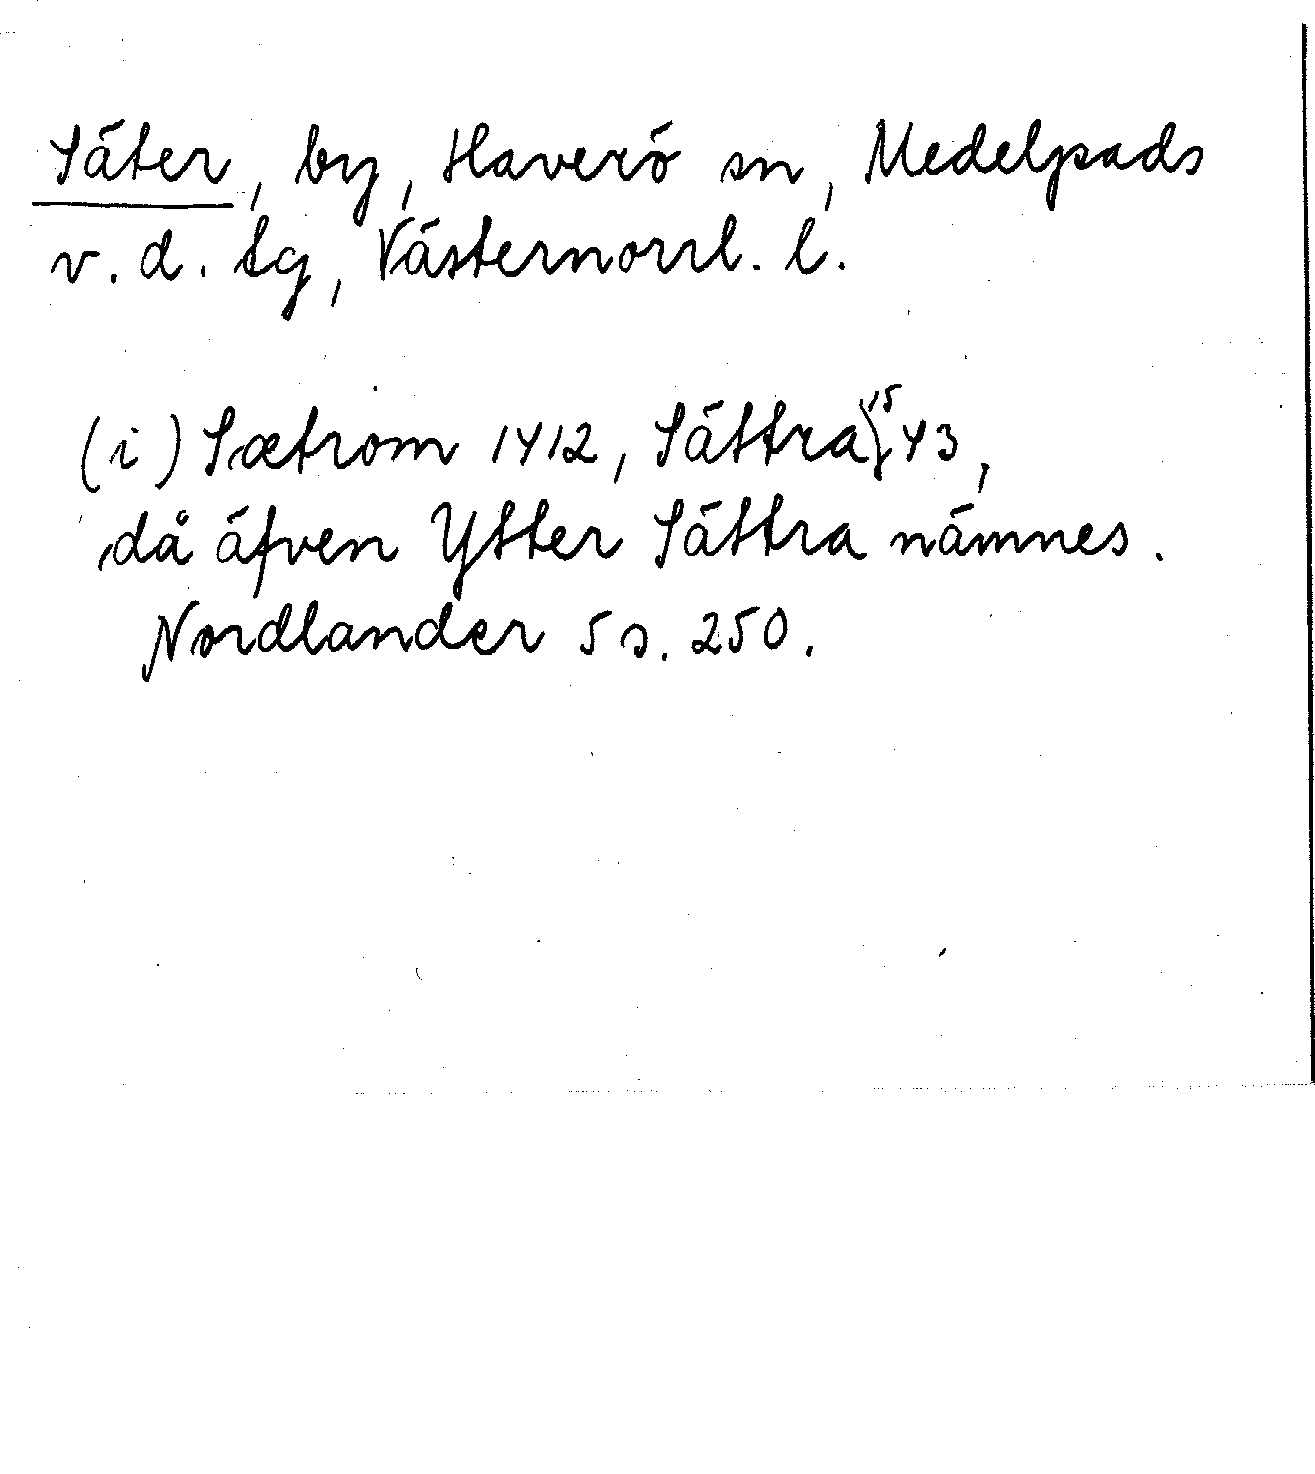 Säter, by, Haverö sn, Medelpads
v. d. tg, Västernorrl. l.
(i) Sætrom 1412, Sättra 1543,
då äfven Ytter Sättra nämnes.
Nordlander 5 s. 250.